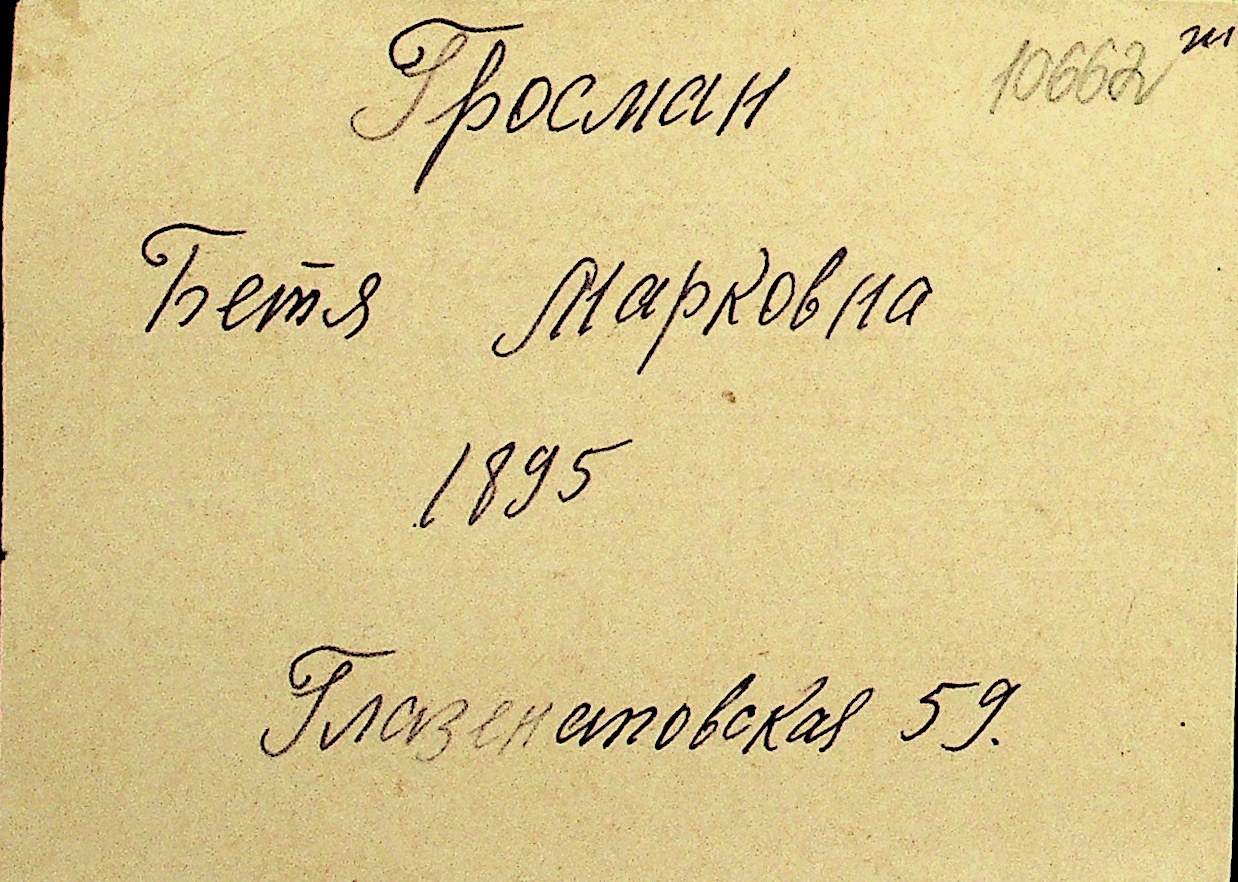 Гросман
10662
Бетя Марковна
1895
Глазенаповская 59.